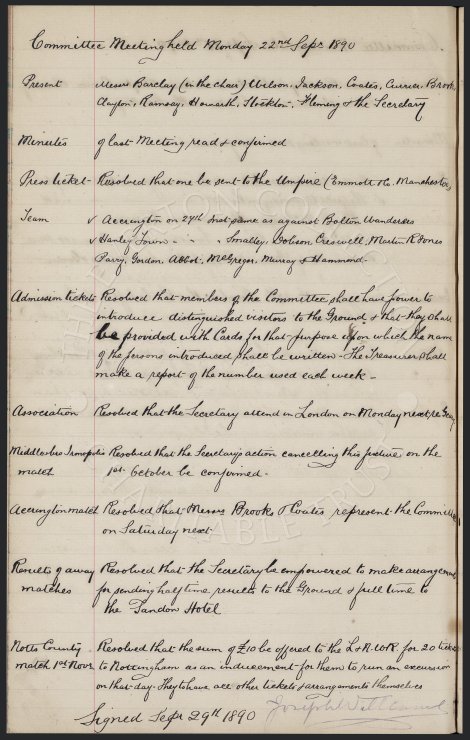 Committee Meeting held Monday 22nd Sepr 1890
Present Messrs Barclay (in the chair) Wilson, Jackson, Coates, Currier, Brooks,
Clayton, Ramsay, Howarth, Stockton, Fleming & the Secretary
Minutes of last Meeting read & confirmed
Press ticket Resolved that one be sent to the Umpire (Emmott Ho, Manchester)
Team ✓ Accrington on 27th Inst same as against Bolton Wanderers
✓ Hanley Town - - Smalley, Dobson, Creswell, Martin R Jones
Parry, Gordon, Abbot, McGregor, Murray & Hammond.
Admission tickets Resolved that members of the Committee shall have power to
introduce distinguished visitors to the Ground & that they shall
be provided with Cards for that purpose upon which the name
of the persons introduced shall be written - The Treasurer shall
make a report of the number used each week -
Association Resolved that the Secretary attend in London on Monday next re
Middlesbro Ironopolis Resolved that the Secretary's action cancelling this fixture on the
match 1st October be confirmed -
Accrington match Resolved that Messrs Brooks & Coates represent the Committee
on Saturday next
Results of away Resolved that the Secretary be empowered to make arrangements
matches for sending half time results to the Ground & full time to
the Tandon Hotel.
Notts County Resolved that the sum of £10 be offered to the L & N.W.R. for 20 tickets
match 1st Novr to Nottingham as an inducement for them to run an excursion
on that day. They to have all other tickets & arrangements themselves
Signed Sepr 29th 1890
THE EVERTON COLLECTION
CHARITABLE TRUST